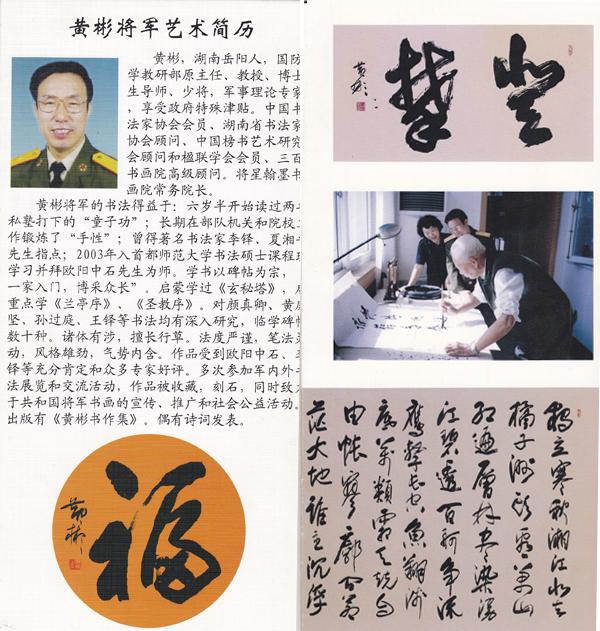 黄彬将军艺术简历
黄彬，湖南岳阳人，国防
学教研部原主任、教授、博士
生导师、少将，军事理论专家
，享受政府特殊津贴。中国书
法家协会会员、湖南省书法家
协会顾问、中国榜书艺术研究
会顾问和楹联学会会员、三百
书画院高级顾问。将星翰墨书
画院常务院长。
黄彬将军的书法得益于：六岁半开始读过两年
私塾打下的“童子功”；长期在部队机关和院校工
作锻炼了“手性”；曾得著名书法家李铎、夏湘平
先生指点；2003年入首都师范大学书法硕士课程班
学习并拜欧阳中石先生为师。学书以碑帖为宗，“
一家入门，博采众长”。启蒙学过《玄秘塔》，后
重点学《兰亭序》、《圣教序》。对颜真卿、黄庭
坚、孙过庭、王铎等书法均有深入研究，临学碑帖
数十种。诸体有涉，擅长行草。法度严谨，笔法灵
动，风格雄劲，气势内含。作品受到欧阳中石、李
铎等充分肯定和众多专家好评。多次参加军内外书
法展览和交流活动，作品被收藏，刻石，同时致力
于共和国将军书画的宣传、推广和社会公益活动。
出版有《黄彬书作集》。偶有诗词发表。
福
黄彬
登攀
黄彬
獨立寒秋湘江北去
橘子洲頭看萬山
紅遍層林盡染漫
江碧透百舸爭流
鷹擊長空魚翔淺
底萬類霜天競自
由悵寥廓問蒼
茫大地誰主沉浮